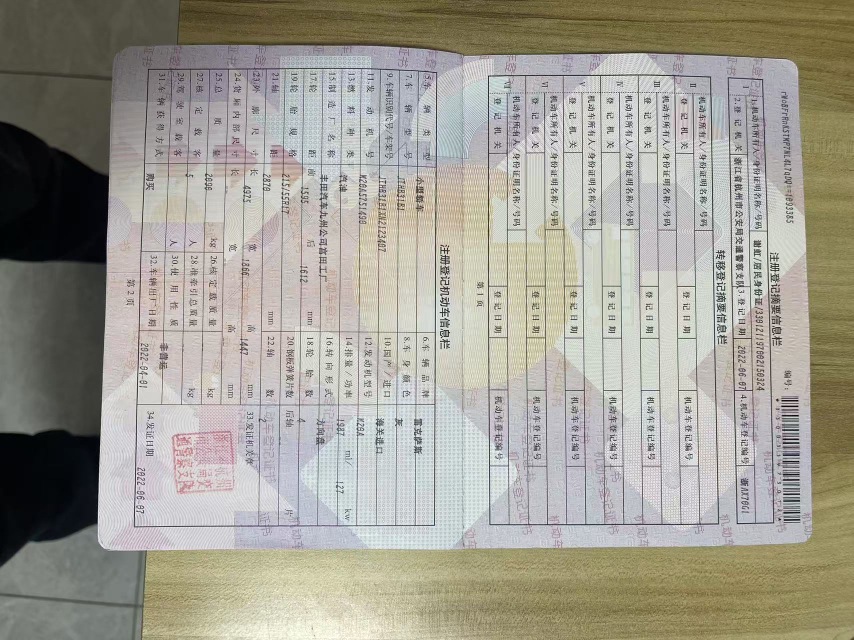 注册登记摘要信息栏
编号:
Ⅰ
1.机动车所有人/身份证明名称/号码 谢虹/居民身份证/330121197002150324
2.登记机关 浙江省杭州市公安局交通警察支队 3.登记日期 2022-06-07 4.机动车登记编号 浙AX70G1
转移登记摘要信息栏
Ⅱ
机动车所有人/身份证明名称/号码
登记机关 登记日期 机动车登记编号
Ⅲ
机动车所有人/身份证明名称/号码
登记机关 登记日期 机动车登记编号
Ⅳ
机动车所有人/身份证明名称/号码
登记机关 登记日期 机动车登记编号
Ⅴ
机动车所有人/身份证明名称/号码
登记机关 登记日期 机动车登记编号
Ⅵ
机动车所有人/身份证明名称/号码
登记机关 登记日期 机动车登记编号
Ⅶ
机动车所有人/身份证明名称/号码
登记机关 登记日期 机动车登记编号
第1页
注册登记机动车信息栏
5.车辆类型 小型轿车 6.车辆品牌 雷克萨斯
7.车辆型号 JTHB31B1 8.车身颜色 灰
9.车辆识别代号/车架号 JTHB31B1XN2123407 10.国产/进口 海关进口
11.发动机号 M20A5251490 12.发动机型号 M20A
13.燃料种类 汽油 14.排量/功率 1987 ml/ 127 kw
15.制造厂名称 丰田汽车九州公司宫田工厂 16.转向形式 方向盘
17.轮距 前 1595 后 1612 mm 18.轮胎数 4
19.轮胎规格 215/55R17 20.钢板弹簧片数 后轴 片
21.轴距 2870 mm 22.轴数 2
23.外廓尺寸 长 4975 宽 1866 高 1447 mm 33.发证机关章
24.货厢内部尺寸 长 宽 高 mm
25.总质量 2090 kg 26.核定载质量 kg
27.核定载客 5 人 28.准牵引总质量 kg
29.驾驶室载客 人 30.使用性质 非营运
31.车辆获得方式 购买 32.车辆出厂日期 2022-04-01 34.发证日期 2022-06-07
第2页